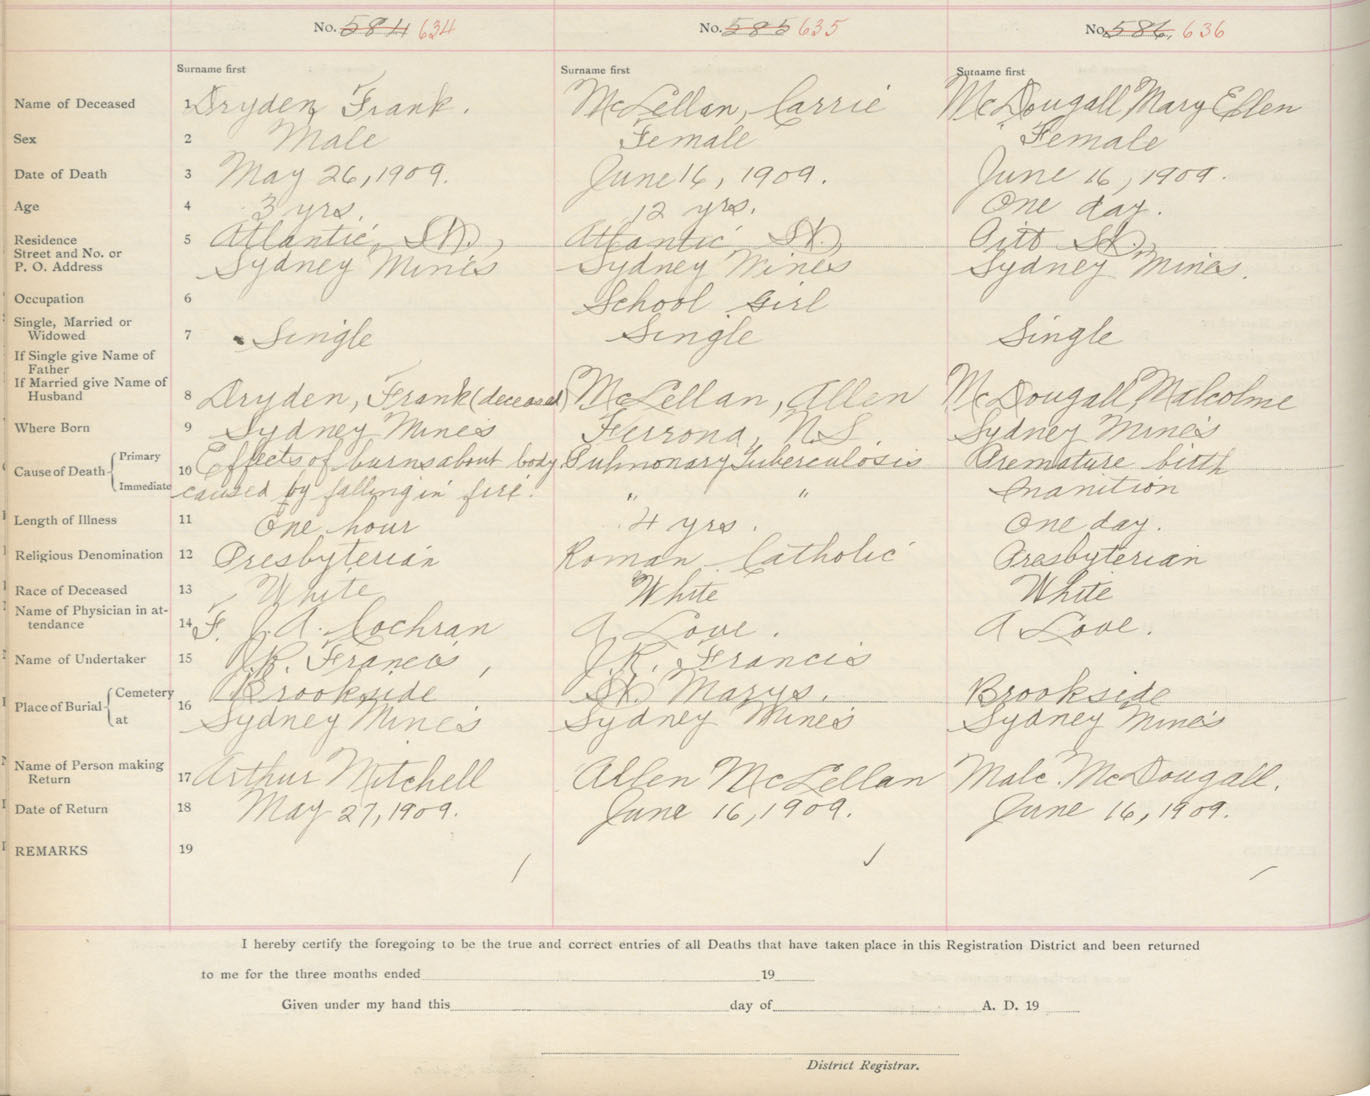 No. 584 634 No. 585 635 No. 586. 636
Surname first Surname first Surname first
Name of Deceased 1 Dryden, Frank. McLellan, Carrie McDougall, Mary Ellen
Sex 2 Male Female Female
Date of Death 3 May 26, 1909. June 16, 1909. June 16, 1909.
Age 4 3 yrs. 12 yrs. One day.
Residence 5 Atlantic St., Atlantic St., Pitt St.,
Street and No. or
P. O. Address Sydney Mines Sydney Mines Sydney Mines.
Occupation 6 School Girl
Single, Married or
Widowed 7 Single Single Single
If Single give Name of
Father
If Married give Name of
Husband 8 Dryden, Frank (deceased) McLellan, Allen McDougall, Malcolme
Where Born 9 Sydney Mines Ferrona, N.S. Sydney Mines
Cause of Death Primary 10 Effects of burns about body Pulmonary Tuberculosis Premature birth
Immediate caused by falling in fire. " " Inanition
Length of Illness 11 One hour 4 yrs. One day.
Religious Denomination 12 Presbyterian Roman Catholic Presbyterian
Race of Deceased 13 White White White
Name of Physician in at-
tendance 14 F. J. A. Cochran A Love. A Love.
Name of Undertaker 15 J.R. Francis, J.R. Francis
Place of Burial Cemetery 16 Brookside St. Marys. Brookside
at Sydney Mines Sydney Mines Sydney Mines
Name of Person making
Return 17 Arthur Mitchell Allen McLellan Malc. McDougall.
Date of Return 18 May 27, 1909. June 16, 1909. June 16, 1909.
REMARKS 19
I hereby certify the foregoing to be the true and correct entries of all Deaths that have taken place in this Registration District and been returned
to me for the three months ended 19
Given under my hand this day of A. D. 19
District Registrar.